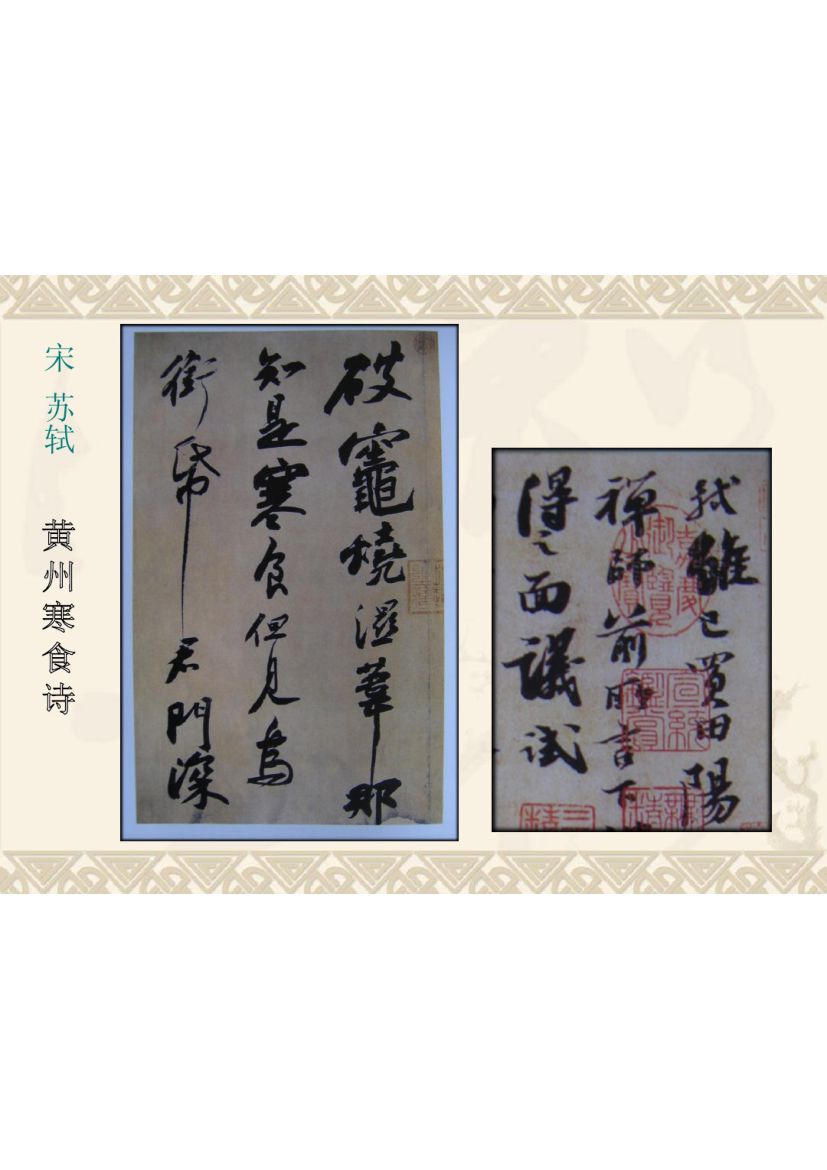 宋 苏轼
黄州寒食诗
破竈燒濕葦那
知是寒食但見烏
銜帋君門深
軾雖已買田陽
禪師前所言下
得之面議試